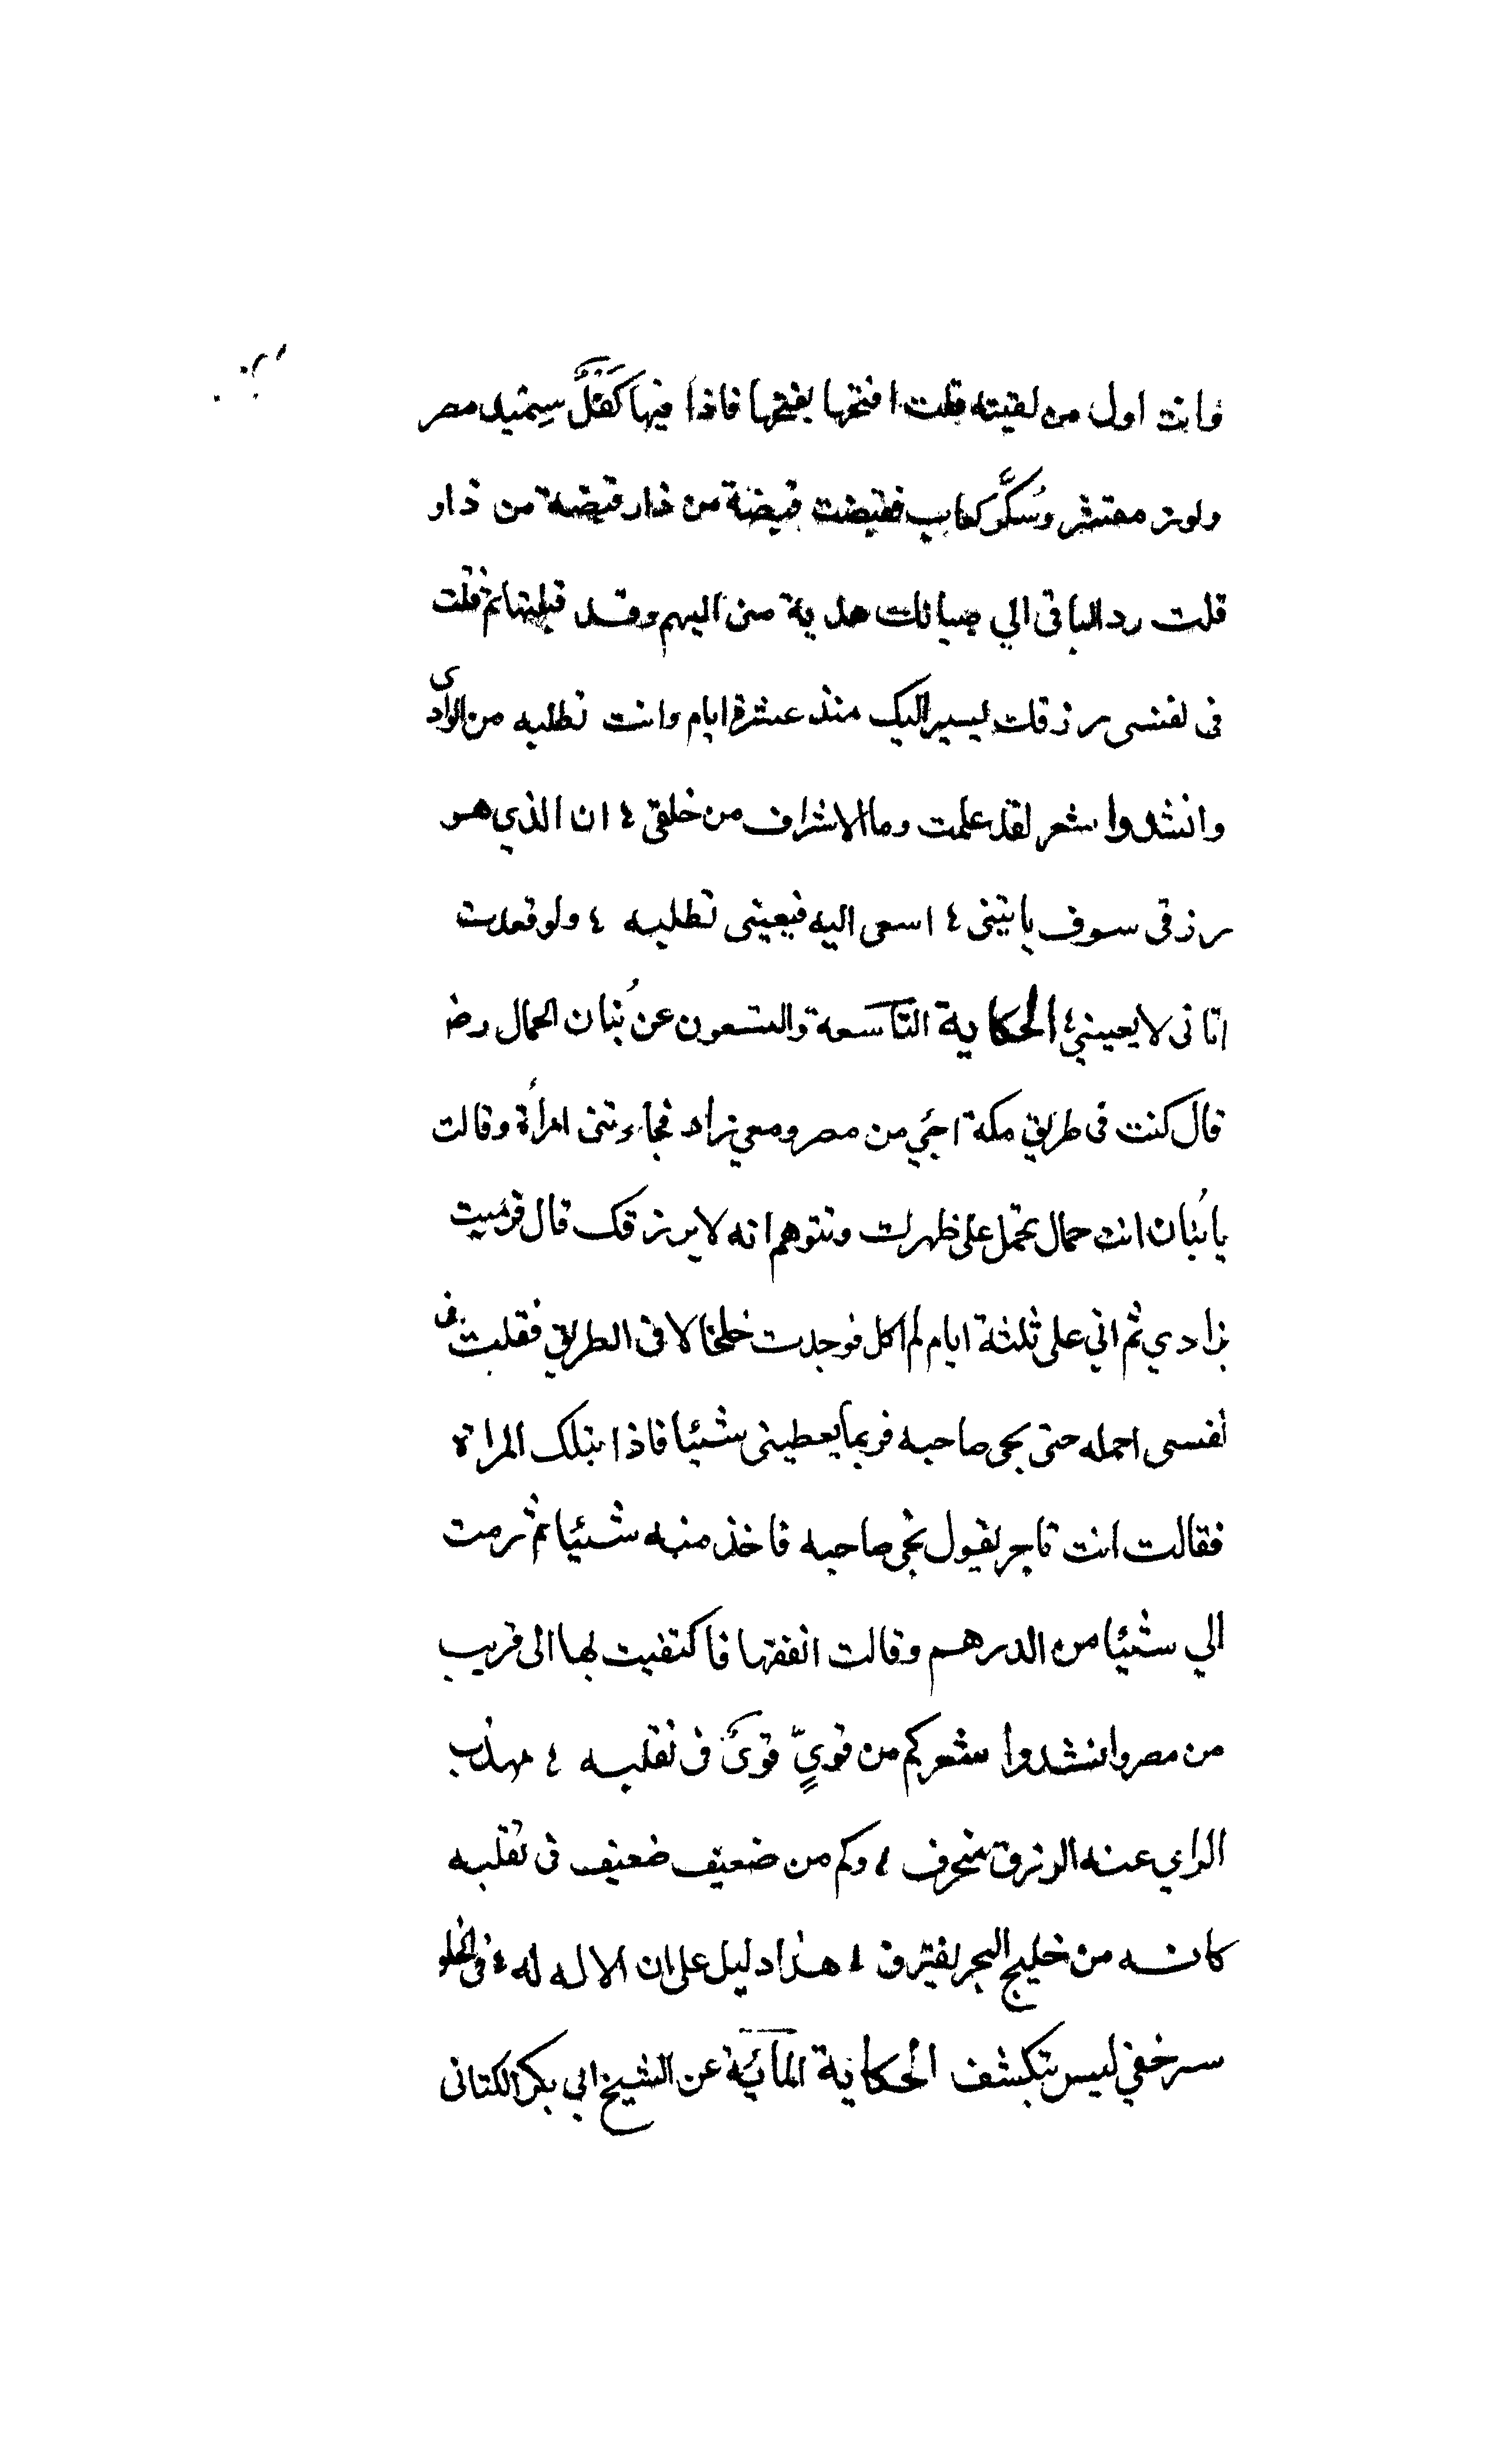 وانت اول من لقيته قلت افتحها بفتحها فاذا فيها كعكٌ سميد مصر
ولوز مقشر وسُكَّر كعاب فقبضت قبضة من ذا وقبضة من ذا و
قلت رد الباقي الي صبيانك هدية مني اليهم وقد قبلتها ثم قلت
في نفسي رزقك يسير اليك منذ عشرة ايام وانت تطلبه من الوادى
وانشدوا شعر لقد علمت وما الاشراف من خلقي ؛ ان الذي هو
رزقي سوف ياتيني ؛ اسعى اليه فيعيني تطلبه ؛ ولو قعدت
اتاني لا يعيني ؛ الحكاية التاسعة والتسعون عن بُنان الحمال رض
قال كنت في طريق مكة اجئ من مصر ومعي زاد فجاءتني امرأة وقالت
يا بُنان انت حمال تحمل على ظهرك وتتوهم انه لا يرزقك قال فرميت
بزادي ثم اتي على ثلثة ايام لم اكل فوجدت خلخالا في الطريق فقلت فى
نفسي احمله حتى يجي صاحبه فربما يعطيني شيئا فاذا بتلك المراة
فقالت انت تاجر تقول يجي صاحبه فاخذ منه شيئا ثم رمت
الي شيئا من الدرهم وقالت انفقها فاكتفيت بها الى قريب
من مصر وانشدوا شعر كم من قويٍّ قوىٌ في تقلبه ؛ مهذب
الراي عنه الرزق منحرف ؛ وكم من ضعيف ضعيف في تقلبه
كانه من خليج البحر يغترف ؛ هذا دليل على ان الاله له ؛ في الخلو
سر خفي ليس ينكشف الحكاية المائة عن الشيخ ابي بكر الكتاني